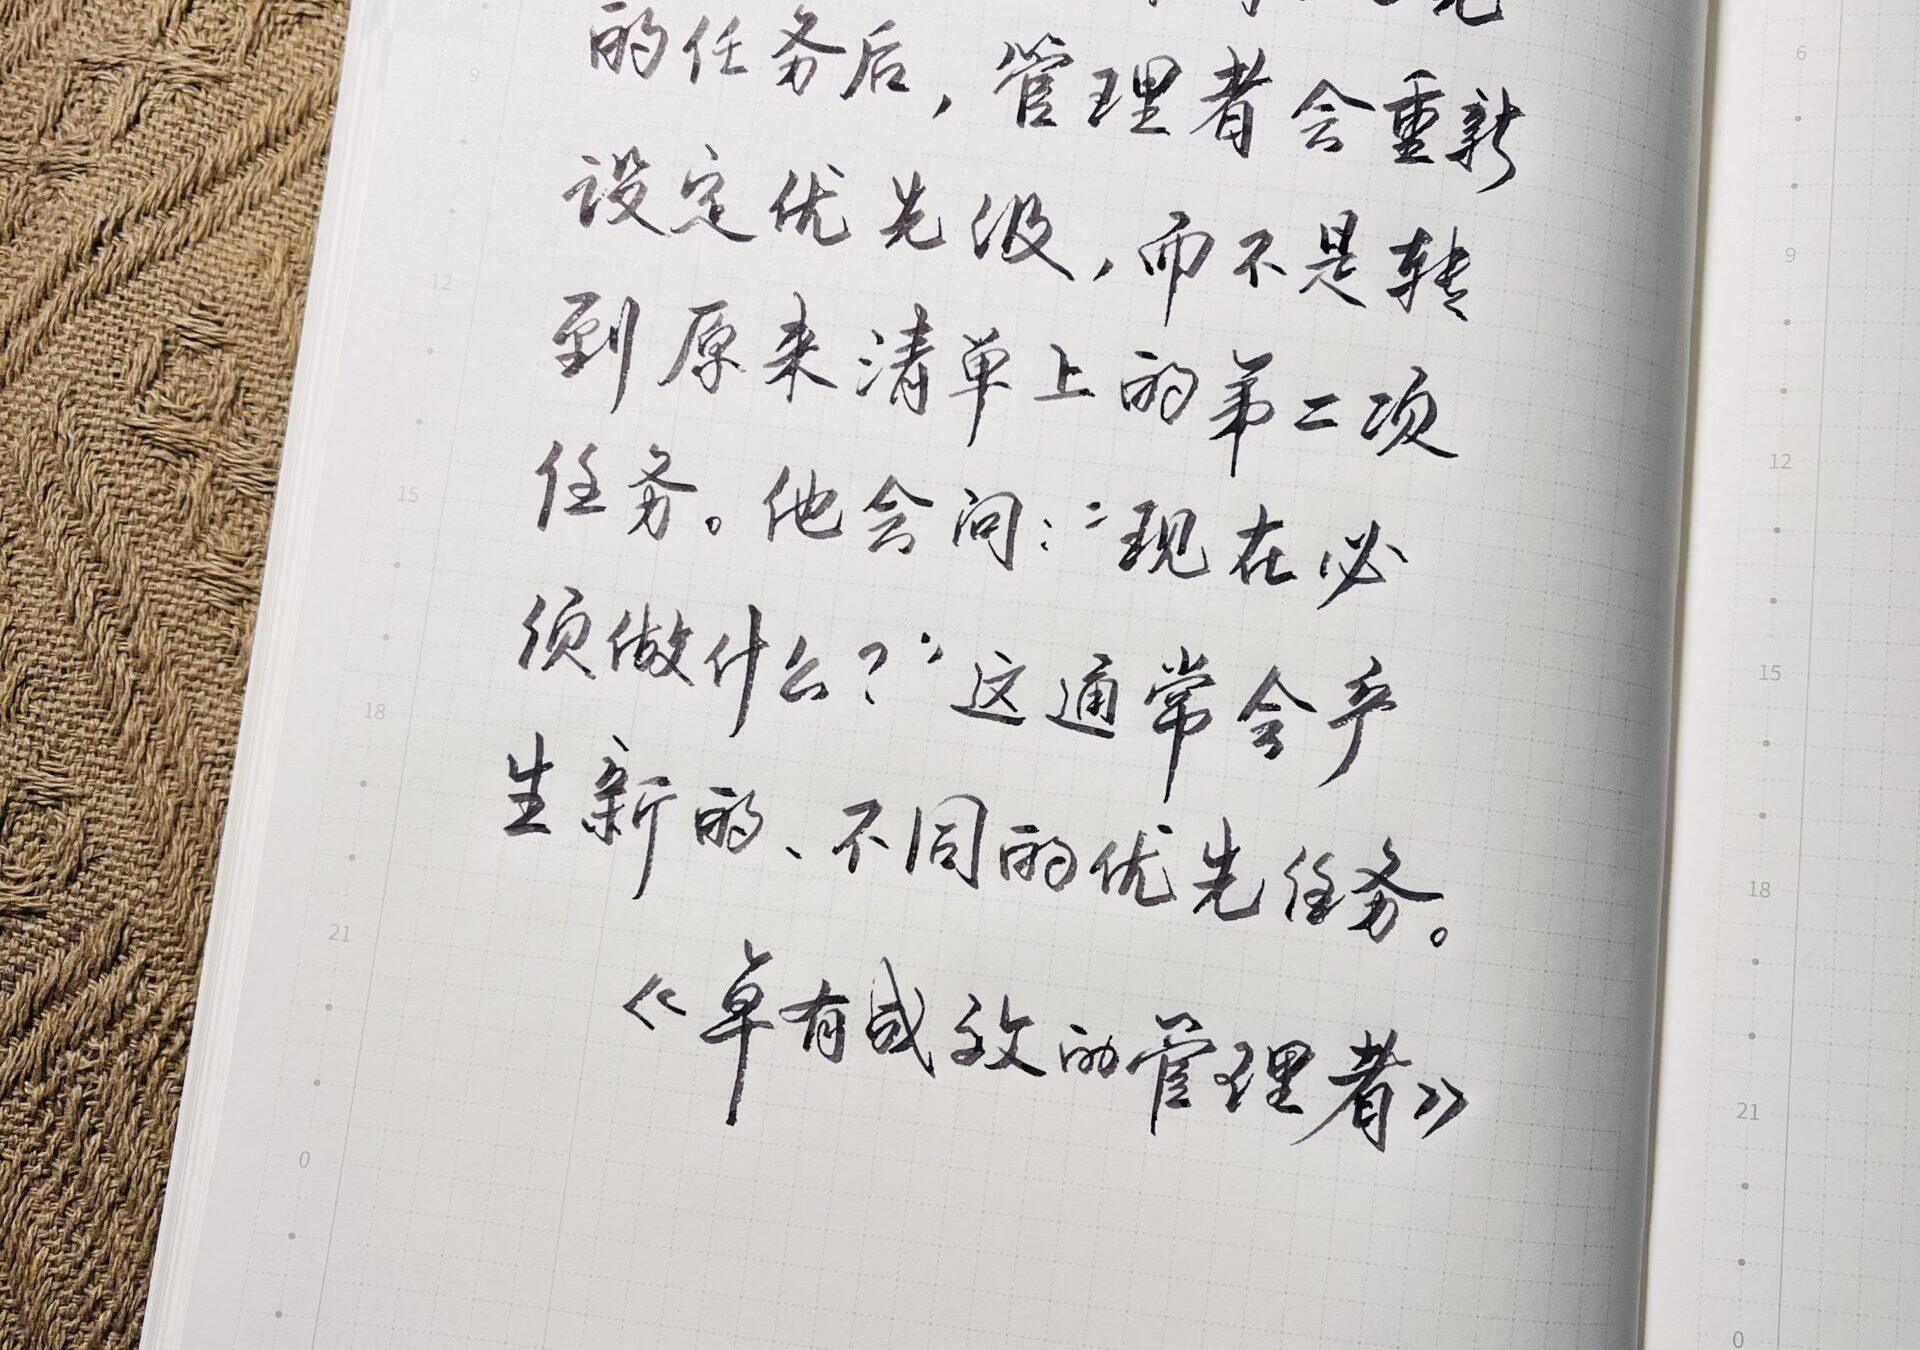 的任务后，管理者会重新
设定优先级，而不是转
到原来清单上的第二项
任务。他会问：“现在必
须做什么？”这通常会产
生新的、不同的优先任务。
《卓有成效的管理者》
9
12
15
18
21
0
6
9
12
15
18
21
0